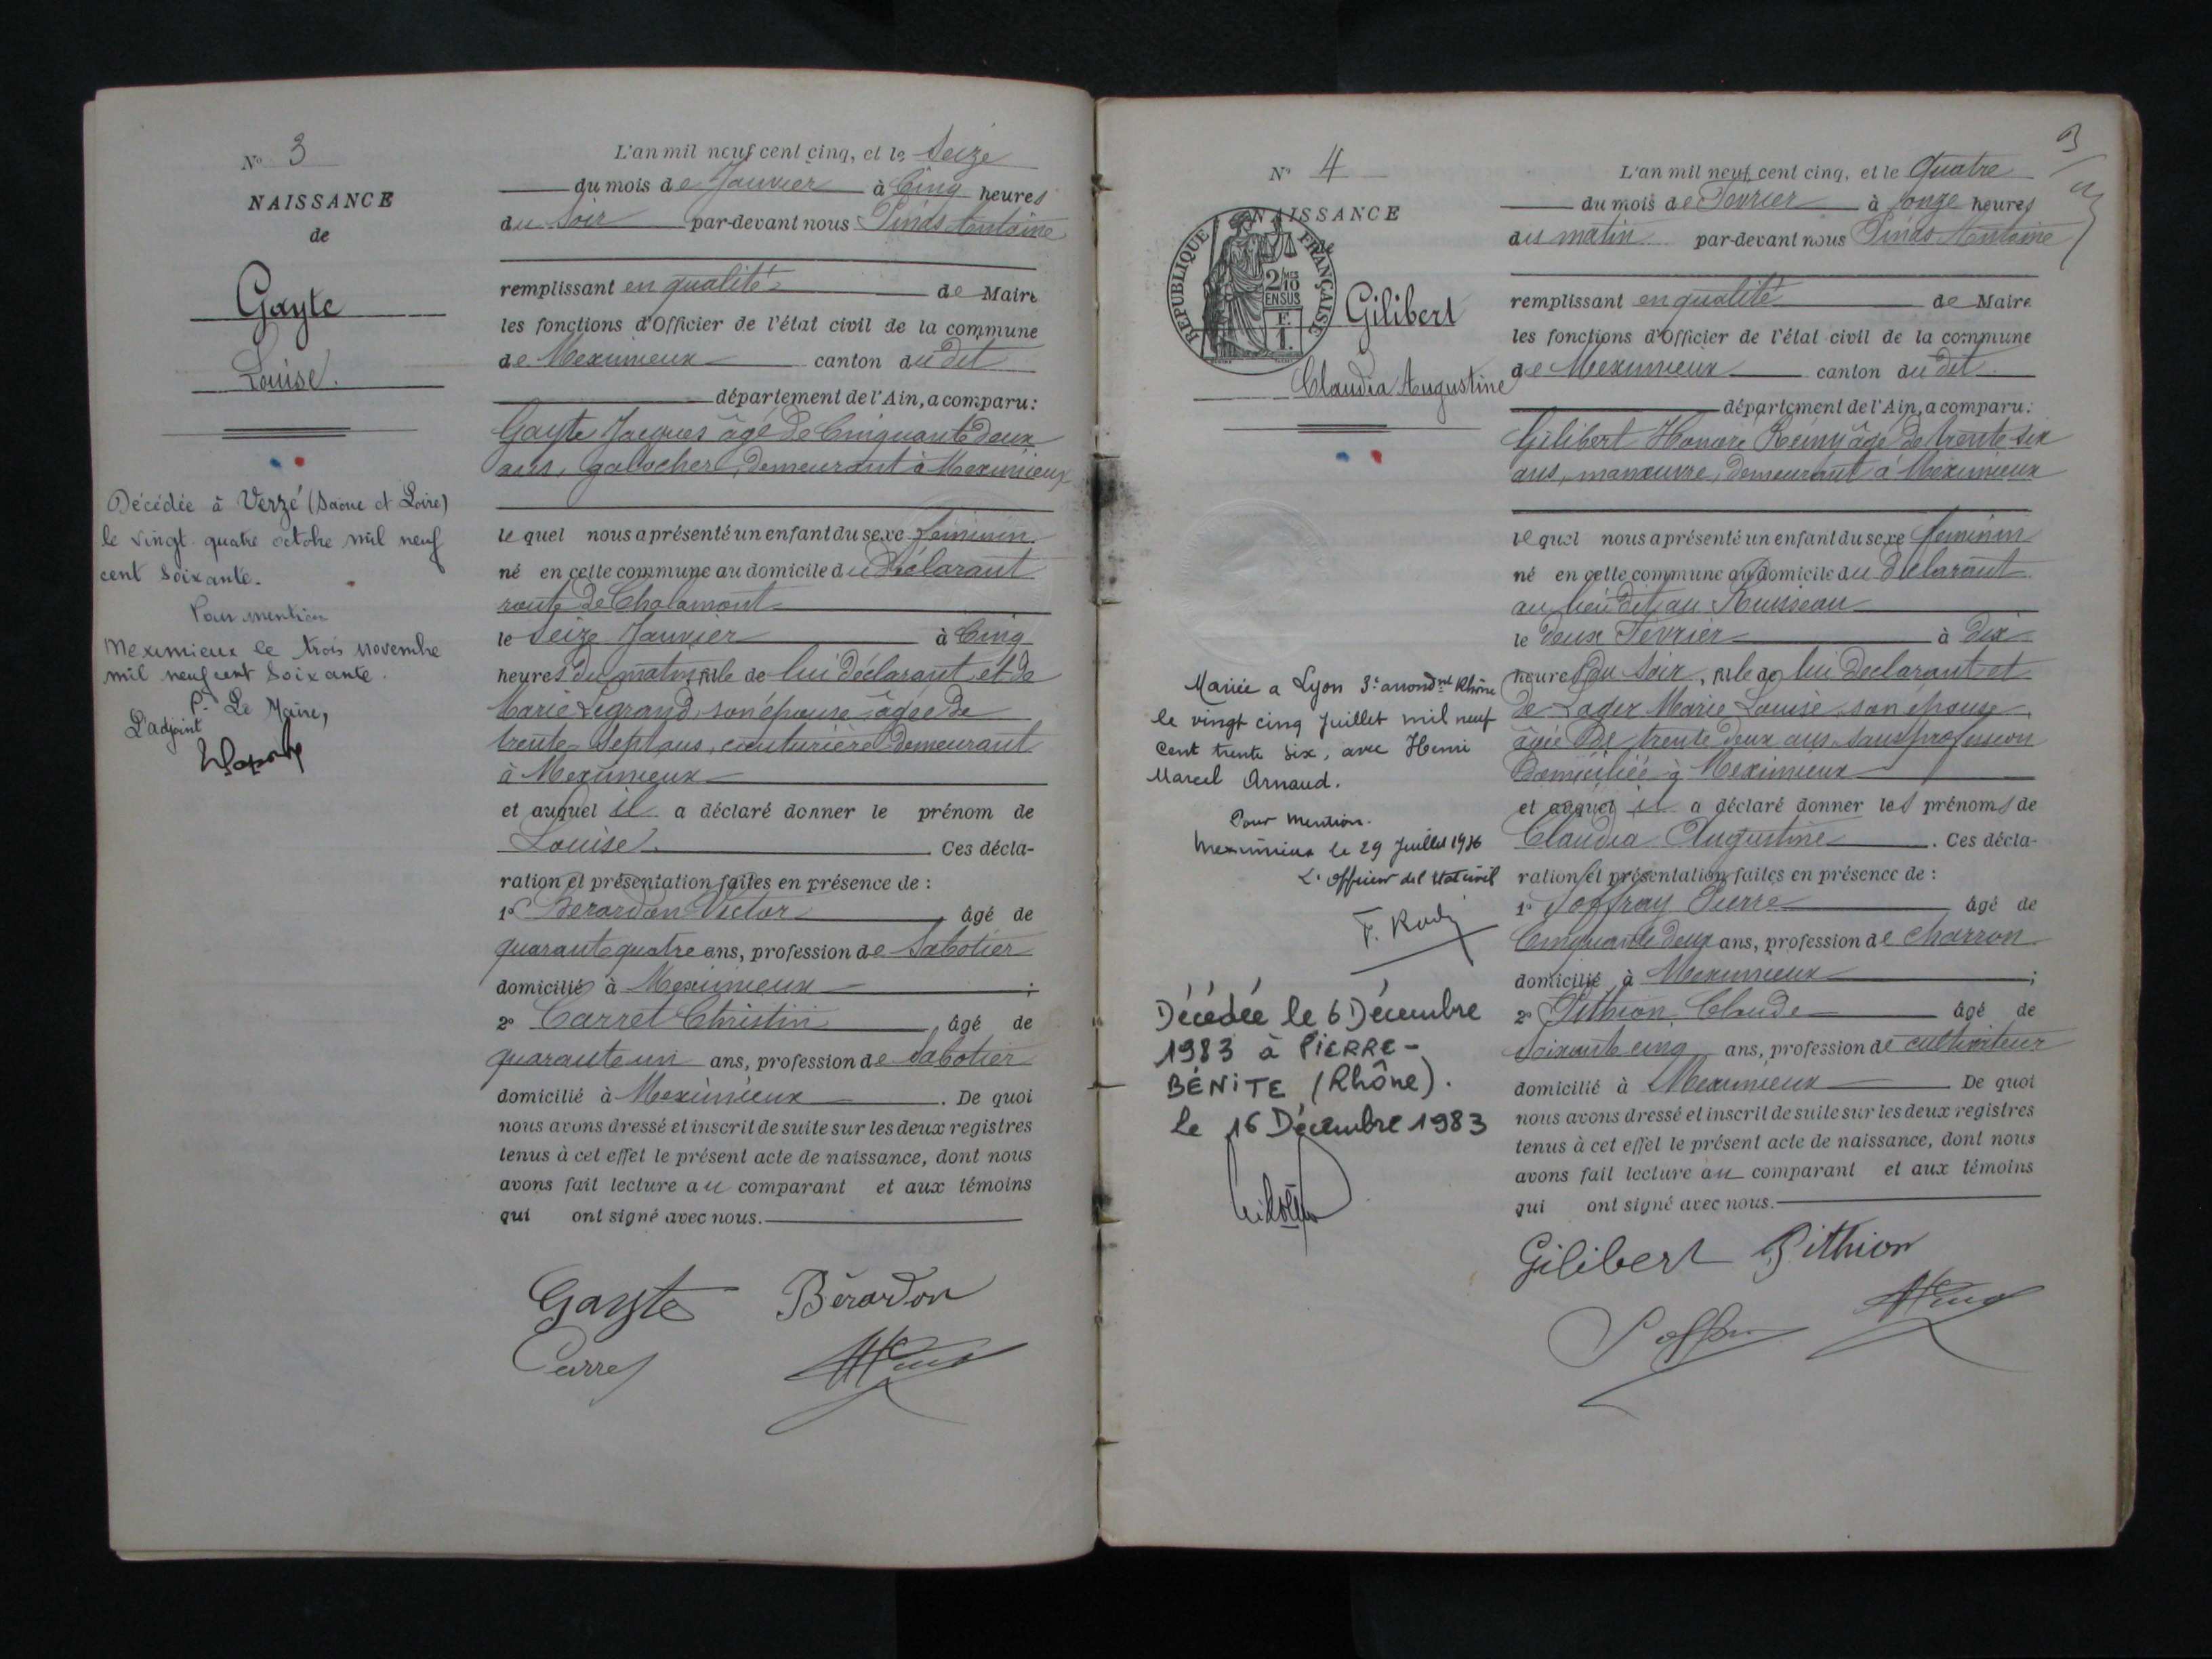 N° 3
NAISSANCE
de
Gayte
Louise.
Décédée à Verzé (Saône et Loire)
le vingt quatre octobre mil neuf
cent soixante.
Pour mention
Meximieux le trois novembre
mil neuf cent soixante.
P. Le Maire,
L'adjoint
L'an mil neuf cent cinq, et le Seize
du mois de Janvier à Cinq heures
du soir par-devant nous Pinds Antoine
remplissant en qualité de Maire
les fonctions d'Officier de l'état civil de la commune
de Meximieux canton du dit
département de l'Ain, a comparu:
Gayte Jacques âgé de Cinquante deux
ans, galocher, demeurant à Meximieux
le quel nous a présenté un enfant du sexe féminin
né en cette commune au domicile du déclarant
route de Chalamont
le Seize Janvier à Cinq
heures du matin, fille de lui déclarant et de
Marie Legrand, son épouse, âgée de
trente-sept ans, couturière demeurant
à Meximieux
et auquel il a déclaré donner le prénom de
Louise. Ces décla-
ration et présentation faites en présence de :
1° Berardon Victor, âgé de
quarante quatre ans, profession de Sabotier
domicilié à Meximieux ;
2° Carret Christin, âgé de
quarante un ans, profession de Sabotier
domicilié à Meximieux. De quoi
nous avons dressé et inscrit de suite sur les deux registres
tenus à cet effet le présent acte de naissance, dont nous
avons fait lecture au comparant et aux témoins
qui ont signé avec nous.
Gayte Bérardon
Carret
3
N° 4
NAISSANCE
de
RÉPUBLIQUE FRANÇAISE
2/10 MES
EN SUS
F.
1.
Gilibert
Claudia Augustine
Mariée a Lyon 3e arrondmt Rhône
le vingt cinq Juillet mil neuf
cent trente six, avec Henri
Marcel Arnaud.
Pour mention.
Meximieux le 29 Juillet 1936
L'officier del'Etat civil
Décédée le 6 Décembre
1983 à PIERRE-
BÉNITE (Rhône).
le 16 Décembre 1983
L'an mil neuf cent cinq, et le Quatre
du mois de Février à onze heures
du matin par-devant nous Pinds Antoine
remplissant en qualité de Maire
les fonctions d'Officier de l'état civil de la commune
de Meximieux canton du dit
département de l'Ain, a comparu:
Gilibert Honoré Rémy âgé de trente six
ans, manœuvre, demeurant à Meximieux
le quel nous a présenté un enfant du sexe féminin
né en cette commune au domicile du déclarant
au lieu dit au Ruisseau
le deux Février à dix
heures du soir, fille de lui declarant et
de Lager Marie Louise, son épouse,
âgée de trente deux ans, sans profession
domiciliée à Meximieux
et auquel il a déclaré donner les prénoms de
Claudia Augustine. Ces décla-
ration et présentation faites en présence de :
1° Joffray Pierre âgé de
Cinquante deux ans, profession de charron
domicilié à Meximieux ;
2° Pithion Claude âgé de
Soixante cinq ans, profession de cultivateur
domicilié à Meximieux De quoi
nous avons dressé et inscrit de suite sur les deux registres
tenus à cet effet le présent acte de naissance, dont nous
avons fait lecture au comparant et aux témoins
qui ont signé avec nous.
Gilibert Pithion